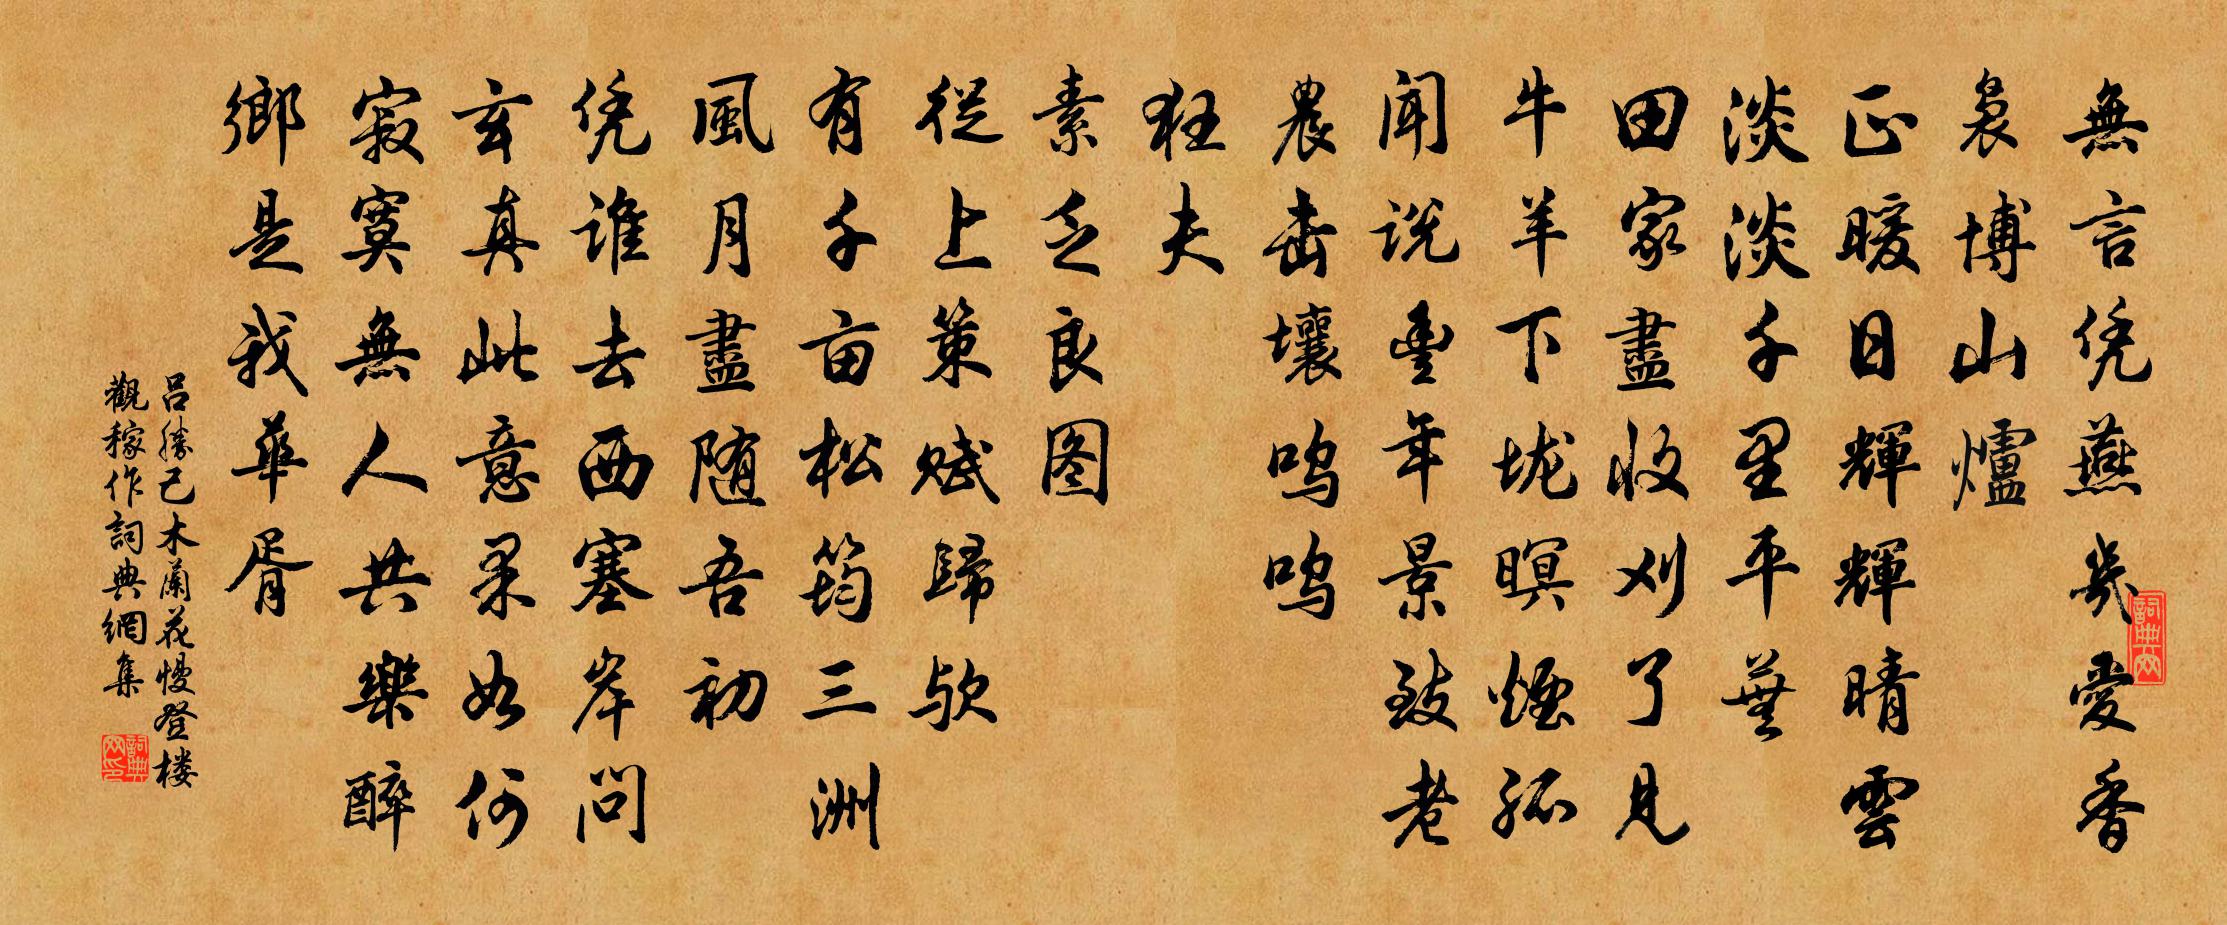 無言凭燕几愛香
裊博山爐
正暖日輝輝晴雲
淡淡千里平蕪
田家盡收刈了見
牛羊下垅暝煙孤
闻说豐年景致老
農击壤呜呜
狂夫
素乏良图
從上策赋歸欤
有千亩松筠三洲
風月盡随吾初
凭谁去西塞岸问
玄真此意果如何
寂寞無人共樂醉
鄉是我華胥
吕勝己木蘭花慢登楼
觀稼作詞典網集
詞典网
詞典网印